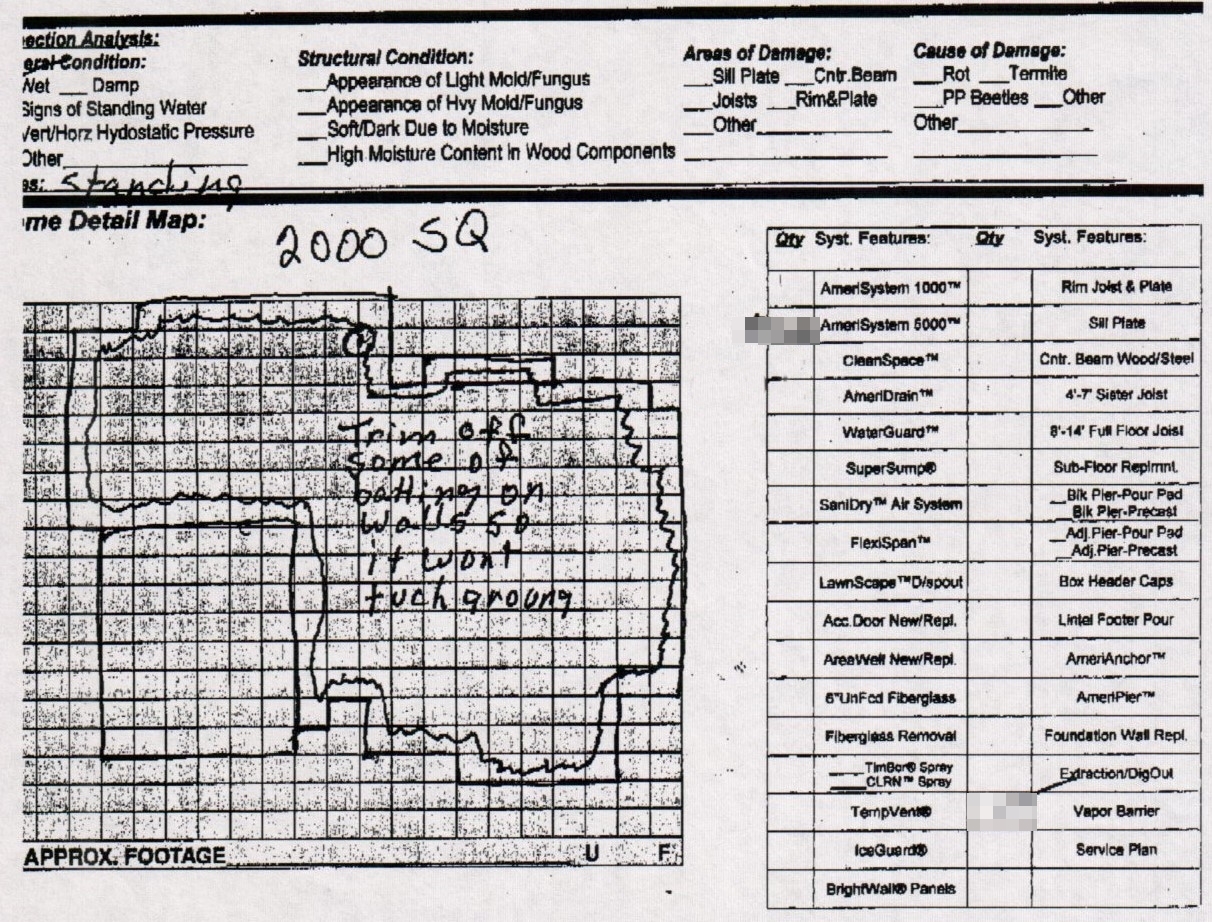 ection Analysis:
eral Condition:
Wet ___ Damp
Signs of Standing Water
Vert/Horz Hydostatic Pressure
Other
es: standing
Structural Condition:
___Appearance of Light Mold/Fungus
___Appearance of Hvy Mold/Fungus
___Soft/Dark Due to Moisture
___High Moisture Content In Wood Components
Areas of Damage:
___Sill Plate ___Cntr.Beam
___Joists ___Rim&Plate
___Other
Cause of Damage:
___Rot ___Termite
___PP Beetles ___Other
Other
me Detail Map:
2000 SQ
Trim off
some of
batting on
walls so
it wont
tuch groung
APPROX. FOOTAGE U F
Qty Syst. Features: Qty Syst. Features:
AmeriSystem 1000™ Rim Joist & Plate
AmeriSystem 5000™ Sill Plate
CleanSpace™ Cntr. Beam Wood/Steel
AmeriDrain™ 4'-7' Sister Joist
WaterGuard™ 8'-14' Full Floor Joist
SuperSump® Sub-Floor Replmnt.
SaniDry™ Air System ___Blk Pier-Pour Pad
Blk Pier-Precast
FlexiSpan™ ___Adj.Pier-Pour Pad
___Adj.Pier-Precast
LawnScape™D/spout Box Header Caps
Acc.Door New/Repl. Lintel Footer Pour
AreaWell New/Repl. AmeriAnchor™
6"UnFcd Fiberglass AmeriPier™
Fiberglass Removal Foundation Wall Repl.
___TimBor® Spray Extraction/DigOut
___CLRN™ Spray
TempVent® Vapor Barrier
IceGuard® Service Plan
BrightWall® Panels